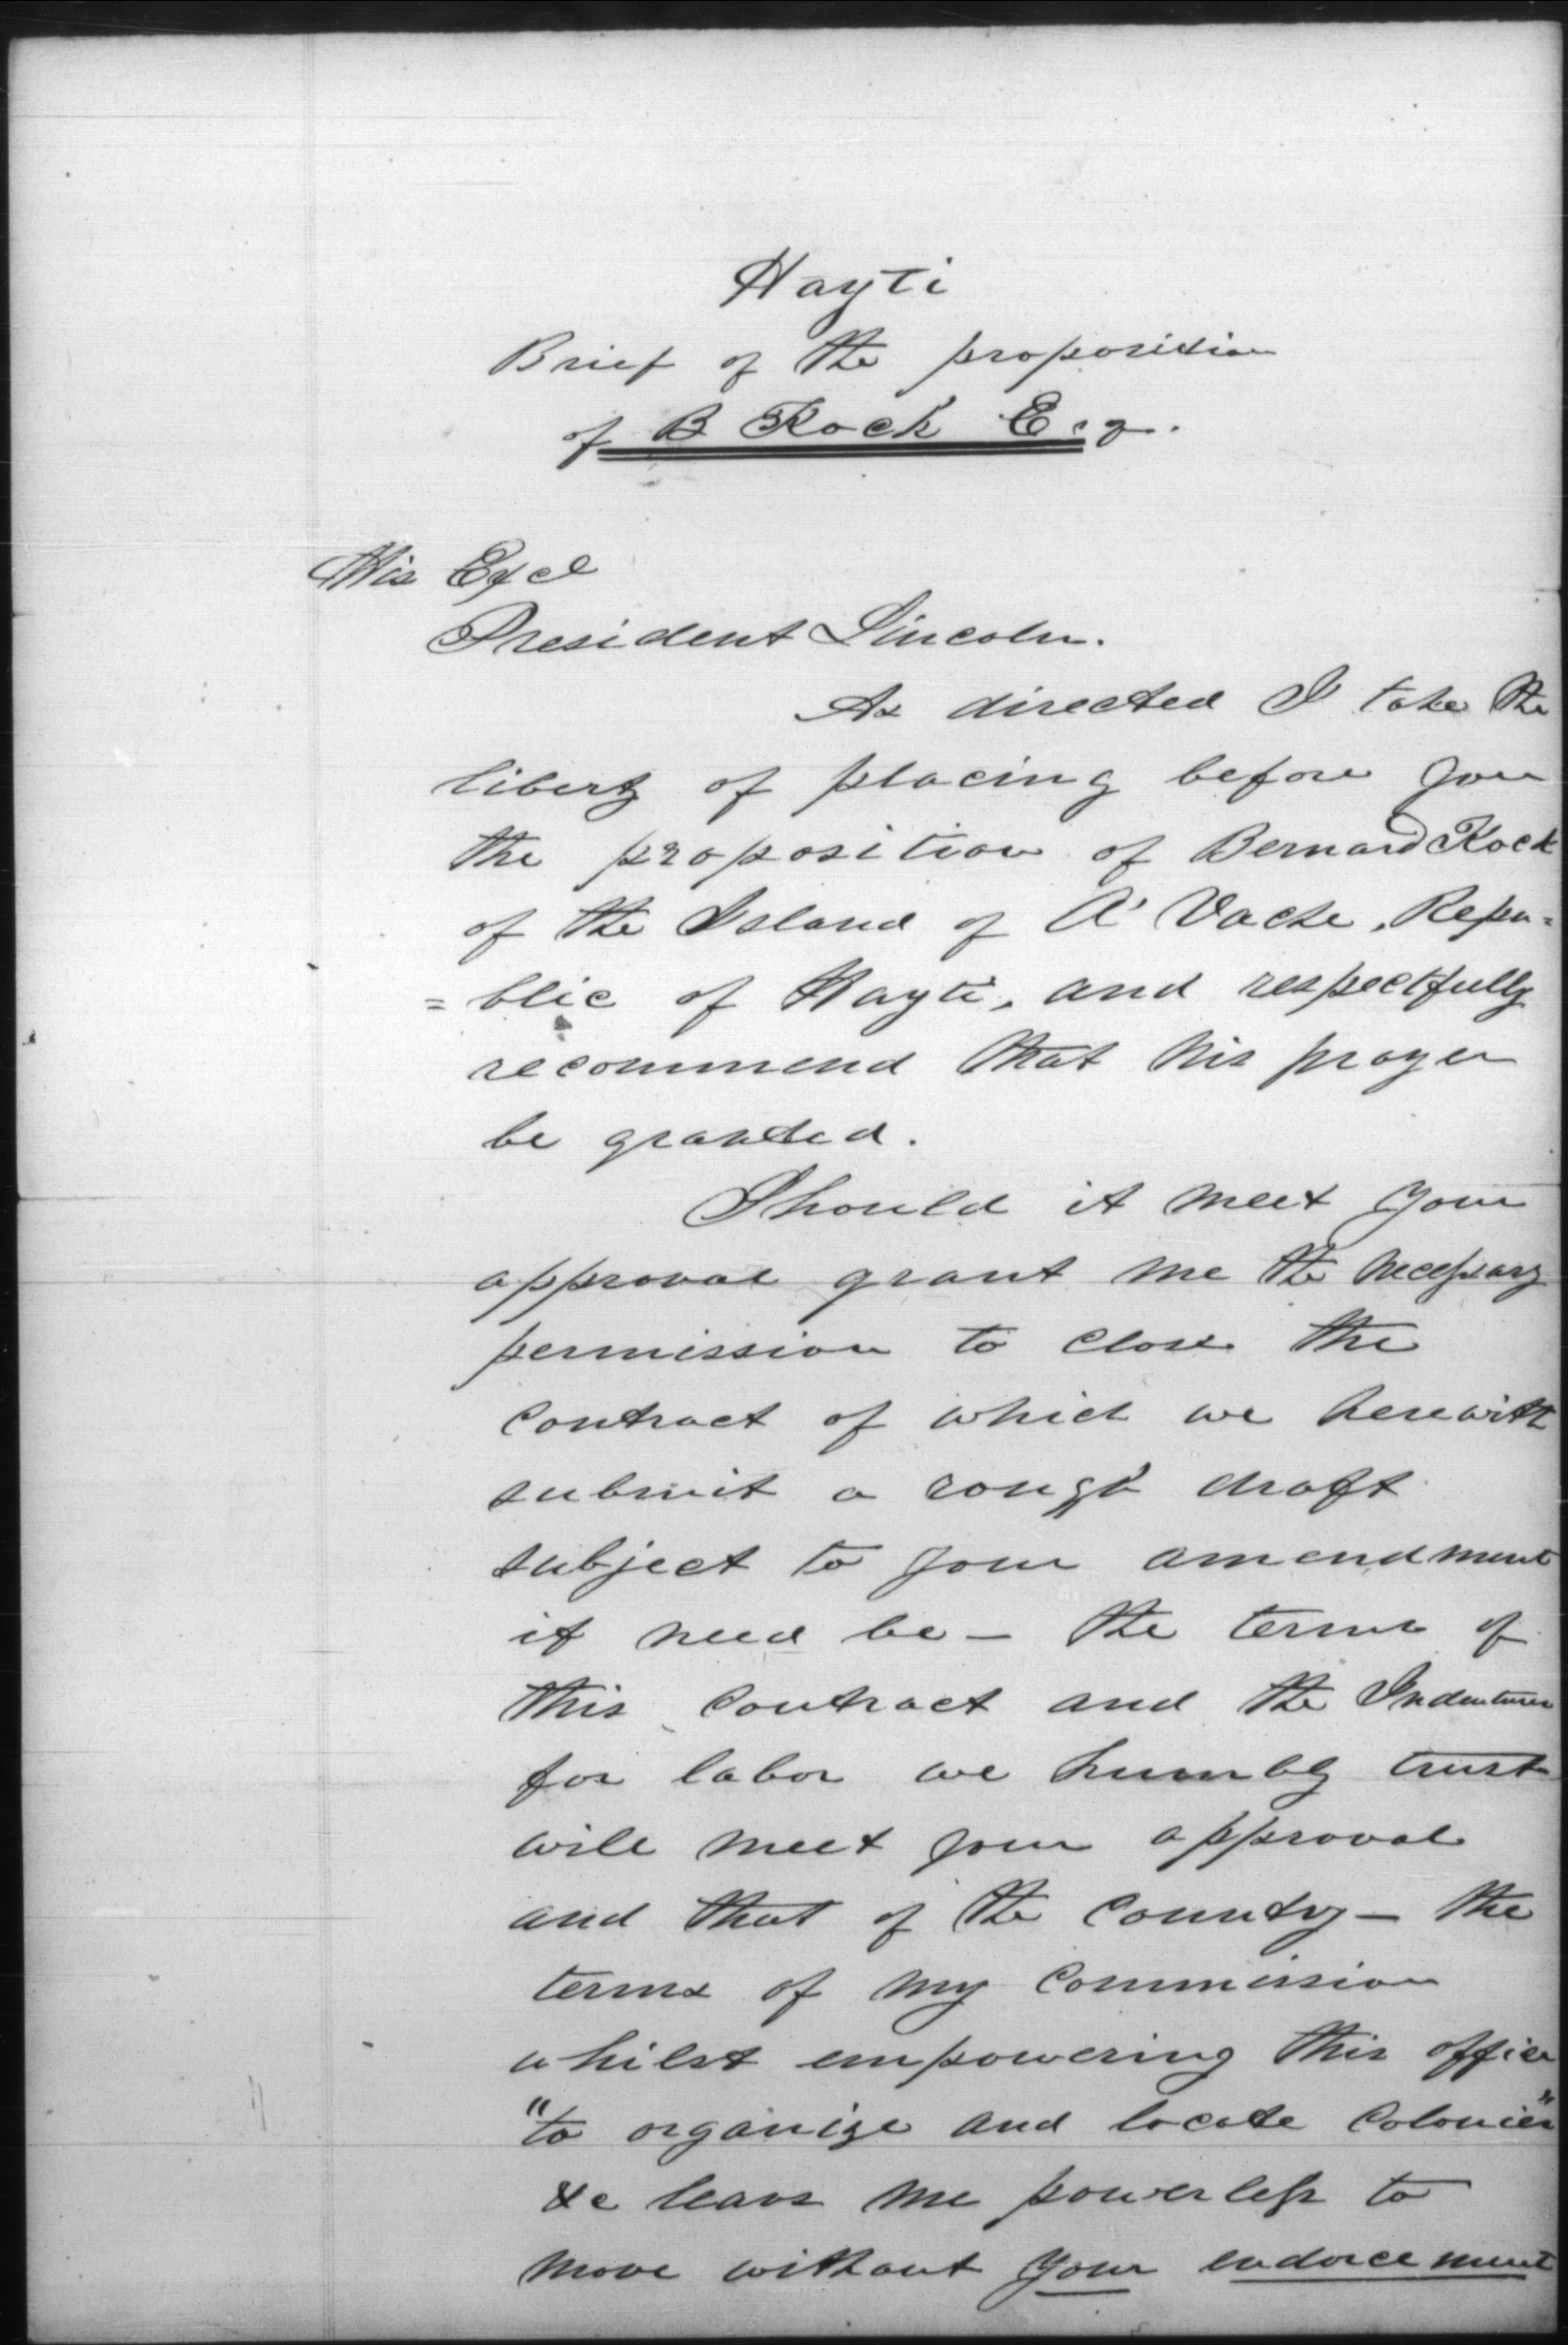 Hayti
Brief of the proposition
of B Kock Esq.
His Excl
President Lincoln.
As directed I take the
liberty of placing before you
the proposition of Bernard Kock
of the Island of A' Vache, Repu=
=blic of Hayti, and respectfully
recommend that his prayer
be granted.
Should it meet your
approval grant me the necessary
permission to close the
contract of which we herewith
submit a rough draft
subject to your amendment
if need be – the terms of
this contract and the Indentures
for labor we humbly trust
will meet your approval
and that of the Country – the
terms of my Commission
whilst empowering this office
"to organize and locate Colonies"
&c leave me powerless to
move without your endorcement